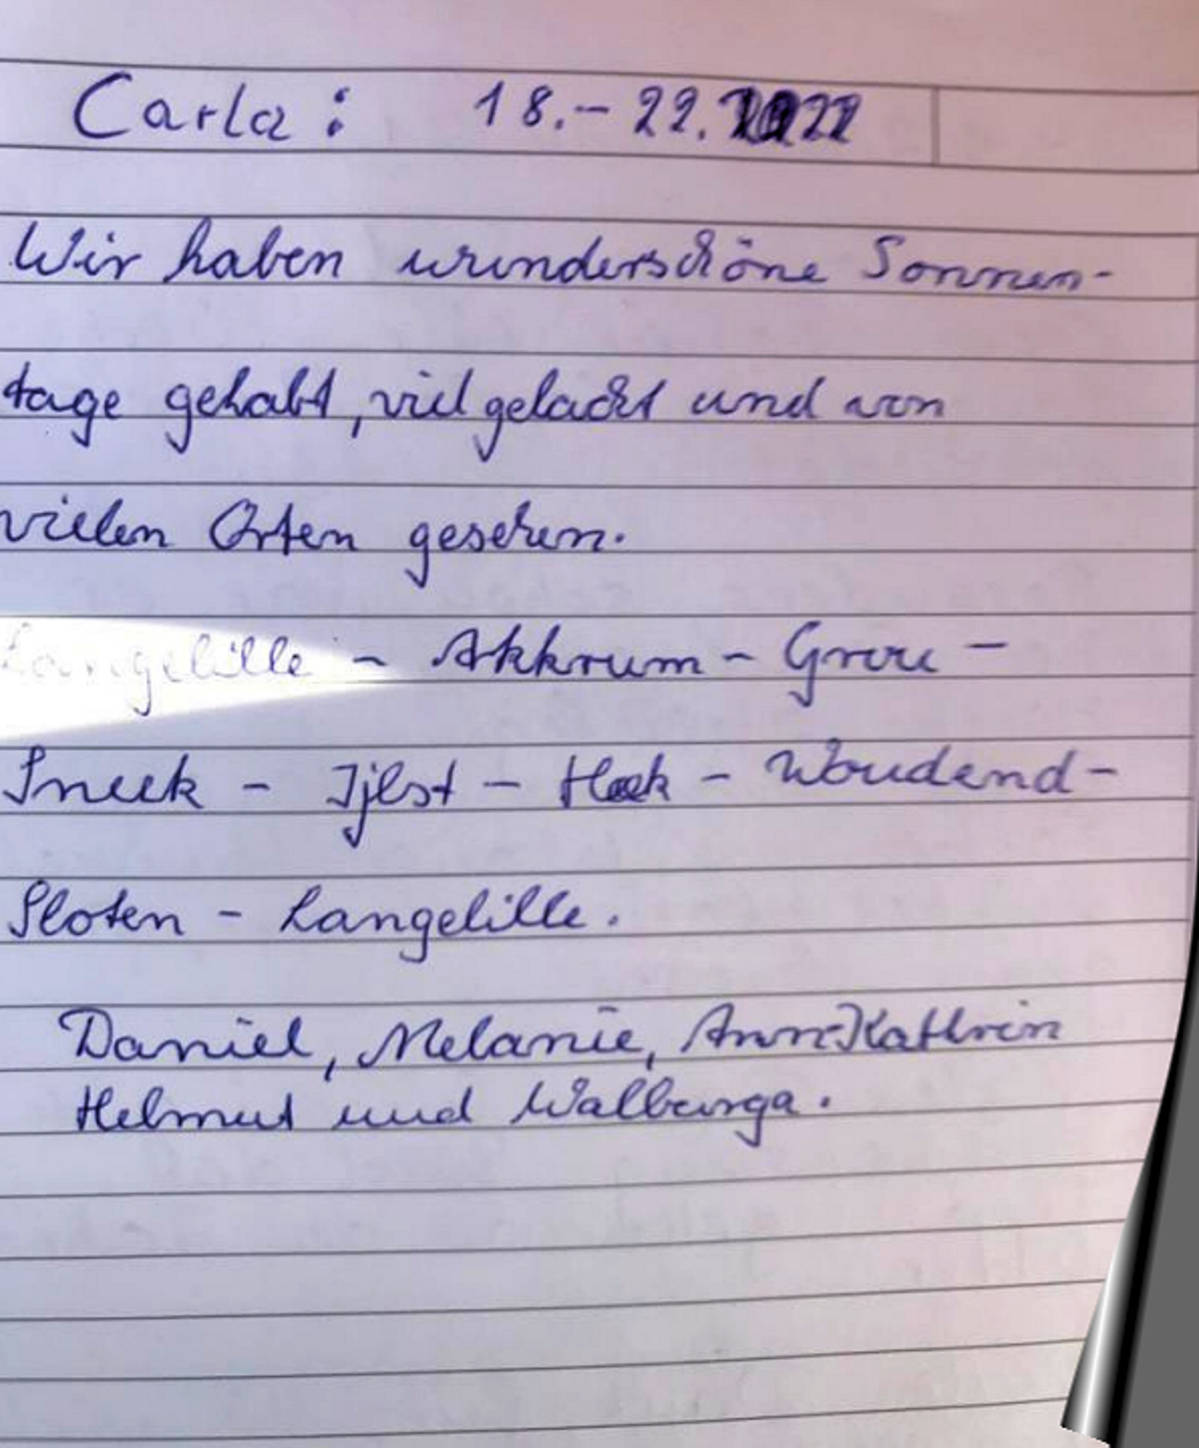 Carla: 18.-22.
Wir haben wunderschöne Sonnen-
tage gehabt, viel gelacht und von
vielen Orten gesehen.
Langelille - Akkrum - Grou -
Sneek - Ijlst - Heek - Woudend-
Sloten - Langelille.
Daniel, Melanie, Ann-Kathrin
Helmut und Walburga.